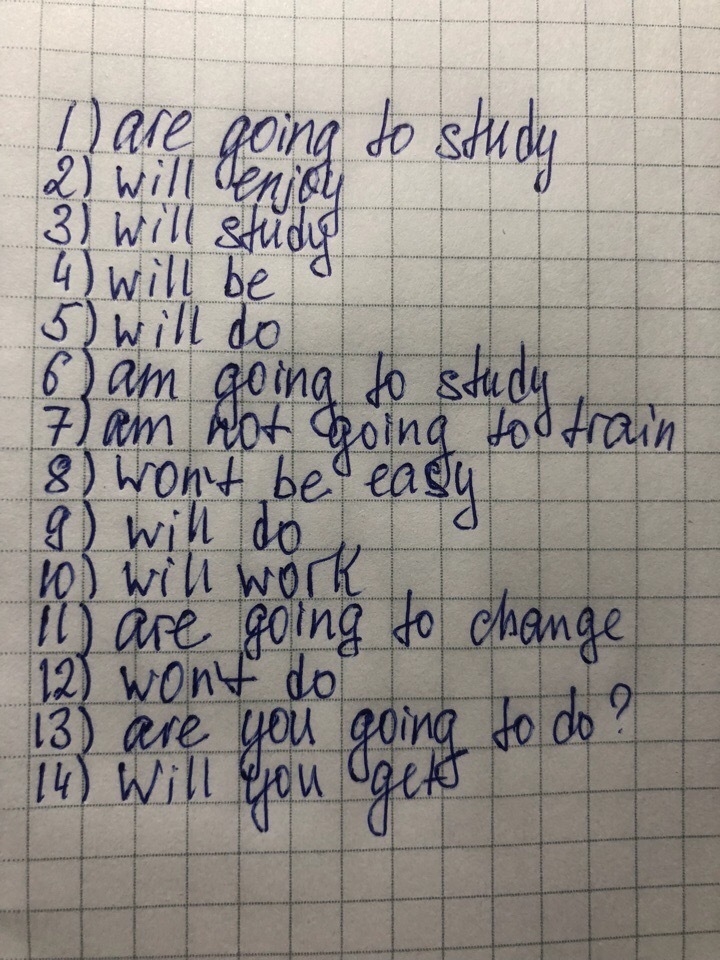 1) are going to study
2) will enjoy
3) will study
4) will be
5) will do
6) am going to study
7) am not going to train
8) won't be easy
9) will do
10) will work
11) are going to change
12) won't do
13) are you going to do?
14) Will you get